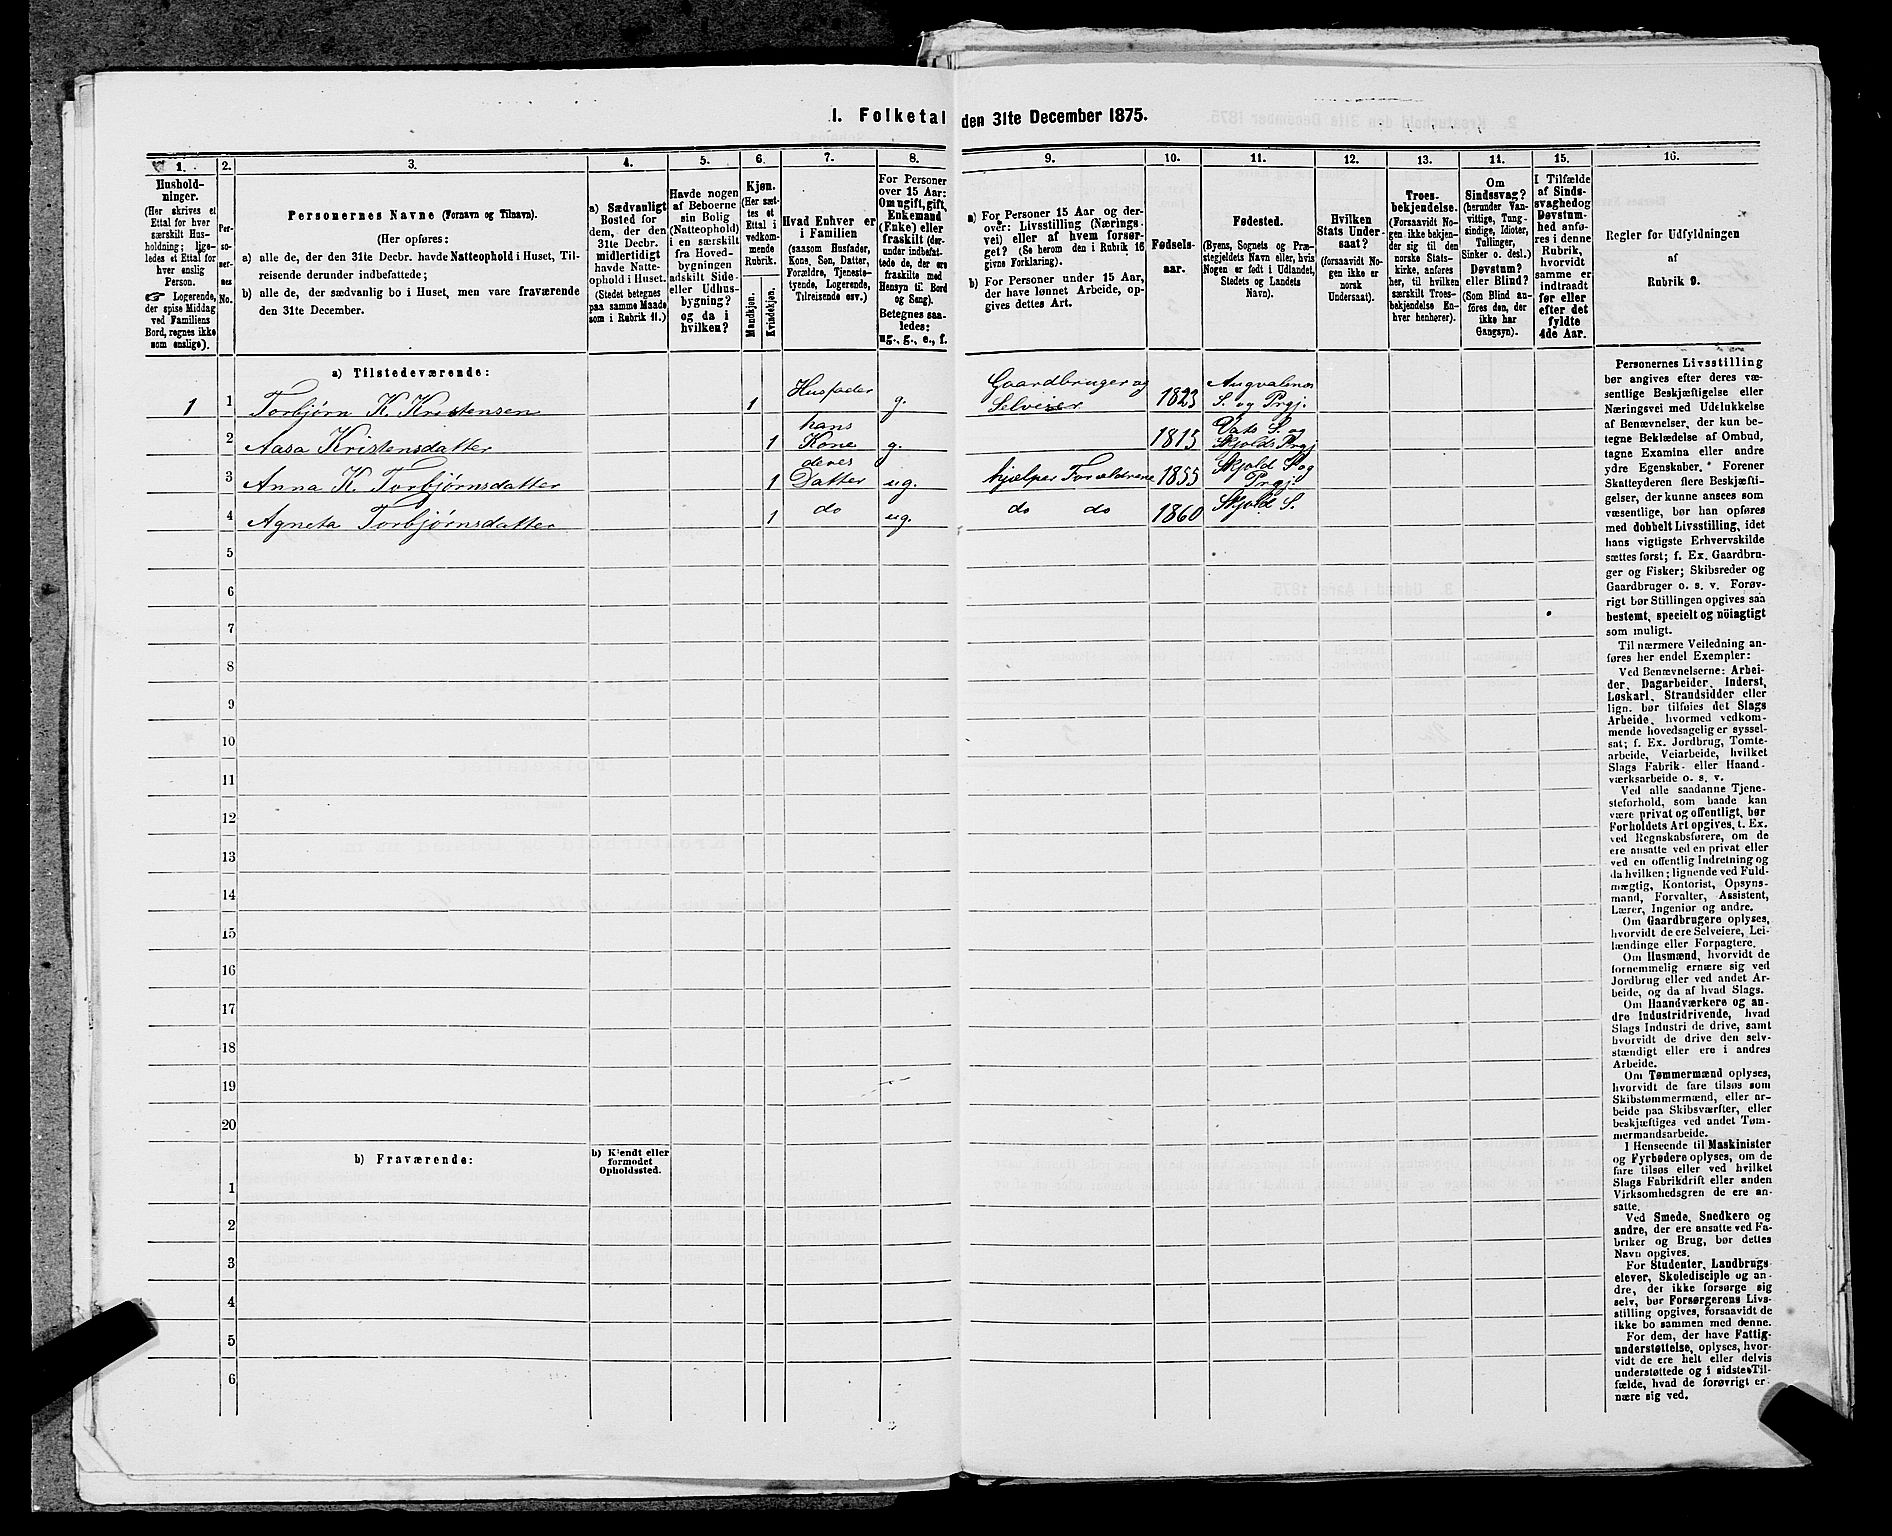 I. Folketal den 31te December 1875.
1. 2. 3. 4. 5. 6. 7. 8. 9. 10. 11. 12. 13. 14. 15. 16.
Husholdninger.
(Her skrives et
Ettal for hver
særskilt Husholdning;
ligeledes et Ettal for
hver enslig
Person.
☞ Logerende,
der spise Middag
ved Familiens
Bord, regnes ikke
som enslige).
Personernes No.
Personernes Navne (Fornavn og Tilnavn).
(Her opføres:
a) alle de, der den 31te Decbr. havde Natteophold i Huset, Tilreisende derunder indbefattede;
b) alle de, der sædvanlig bo i Huset, men vare fraværende
den 31te December.
a) Sædvanligt
Bosted for
dem, der den
31te Decbr.
midlertidigt
havde Natteophold i Huset.
(Stedet betegnes
paa samme Maade
som i Rubrik 11.)
Havde nogen
af Beboerne
sin Bolig
(Natteophold)
i en særskilt
fra Hovedbygningen
adskilt Side-
eller Udhusbygning?
og da i
hvilken?
Kjøn.
(Her sættes et
Ettal i
vedkommende
Rubrik.
Mandkjøn.
Kvindekjøn.
Hvad Enhver er
i Familien
(saasom Husfader,
Kone, Søn, Datter,
Forældre, Tjenestetyende, Logerende,
Tilreisende osv.)
For Personer
over 15 Aar:
Om ugift, gift,
Enkemand
(Enke) eller
fraskilt (derunder indbefattede de, der ere
fraskilte med
Hensyn til Bord
og Seng).
Betegnes saaledes:
ug., g., e., f.
a) For Personer 15 Aar og derover: Livsstilling (Næringsvei) eller af hvem forsørget? (Se herom den i Rubrik 16
givne Forklaring).
b) For Personer under 15 Aar,
der have lønnet Arbeide, opgives dettes Art.
Fødselsaar.
Fødested.
(Byens, Sognets og Præstegjeldets Navn eller, hvis
Nogen er født i Udlandet,
Stedets og Landets
Navn).
Hvilken
Stats Undersaat?
(forsaavidt Nogen ikke er
norsk
Undersaat).
Troesbekjendelse.
(Forsaavidt Nogen ikke bekjender sig til den
norske Statskirke, anføres
her, til hvilken
særskilt Troesbekjendelse Enhver henhører).
Om
Sindssvag?
(herunder Vanvittige, Tungsindige, Idioter,
Tullinger,
Sinker o. desl.)
Døvstum?
eller Blind?
(Som Blind anføres den, der
ikke har
Gangsyn).
I Tilfælde
af Sindssvaghed og
Døvstumhed anføres i denne
Rubrik,
hvorvidt
samme er
indtraadt
før eller
efter det
fyldte
4de Aar.
Regler for Udfyldningen
af
Rubrik 9.
a) Tilstedeværende:
1 1 Torbjørn K. Kristensen 1 Husfader g. Gaardbruger og Selveier 1823 Augvalsnes S. og Prgj.
2 Aasa Kristensdatter 1 hans Kone g. 1815 Vats S. og Skjolds Prgj
3 Anna K. Torbjørnsdatter 1 deres Datter ug. hjælper Forældrene 1855 Skjold S og Prgj.
4 Agneta Torbjørnsdatter 1 do ug. do do 1860 Skjold S.
5
6
7
8
9
10
11
12
13
14
15
16
17
18
19
20
b) Fraværende:
b) Kjendt eller
formodet
Opholdssted.
1
2
3
4
5
6
Personernes Livsstilling
bør angives efter deres væsentlige Beskjæftigelse eller
Næringsvei med Udelukkelse
af Benævnelser, der kun betegne Beklædelse af Ombud,
tagne Examina eller andre
ydre Egenskaber. Forener
Skatteyderen flere Beskjæftigelser, der kunne ansees som
væsentlige, bør han opføres
med dobbelt Livsstilling, idet
hans vigtigste Erhvervskilde
sættes først; f. Ex. Gaardbruger og Fisker; Skibsreder og
Gaardbruger o. s. v. Forøvrigt bør Stillingen opgives saa
bestemt, specielt og nöiagtigt
som muligt.
Til nærmere Veiledning anføres her endel Exempler:
Ved Benævnelserne: Arbeider, Dagarbeider, Inderst,
Løskarl, Strandsidder eller
lign. bør tilføies det Slags
Arbeide, hvormed vedkommende hovedsagelig er sysselsat; f. Ex. Jordbrug, Tomtearbeide, Veiarbeide, hvilket
Slags Fabrik- eller Haandværksarbeide o. s. v.
Ved alle saadanne Tjenesteforhold, som baade kan
være privat og offentligt, bør
Forholdets Art opgives, t. Ex.
ved Regnskabsførere, om de
ere ansatte ved en privat eller
ved en offentlig Indretning og
da hvilken; lignende ved Fuldmægtig, Kontorist, Opsynsmand, Forvalter, Assistent,
Lærer, Ingeniør og andre.
Om Gaardbrugere oplyses,
hvorvidt de ere Selveiere, Leilændinge eller Forpagtere.
Om Husmænd, hvorvidt de
fornemmelig ernære sig ved
Jordbrug eller ved andet Arbeide, og da af hvad Slags.
Om Haandværkere og andre Industridrivende, hvad
Slags Industri de drive, samt
hvorvidt de drive den selvstændigt eller ere i andres
Arbeide.
Om Tømmermænd oplyses,
hvorvidt de fare tilsøs som
Skibstømmermænd, eller arbeide paa Skibsværfter, eller
beskjæftiges ved andet Tømmermandsarbeide.
I Henseende til Maskinister
og Fyrbødere oplyses, om de
fare tilsøs eller ved hvilket
Slags Fabrikdrift eller anden
Virksomhedsgren de ere ansatte.
Ved Smede, Snedkere og
andre, der ere ansatte ved Fabriker og Brug, bør dettes
Navn opgives.
For Studenter, Landbrugselever, Skoledisciple og andre, der ikke forsørge sig
selv, bør Forsørgerens Livsstilling opgives, forsaavidt de
ikke bo sammen med denne.
For dem, der have Fattigunderstøttelse, oplyses, hvorvidt de ere helt eller delvis
understøttede og i sidste Tilfælde, hvad de forøvrigt ernære sig ved.